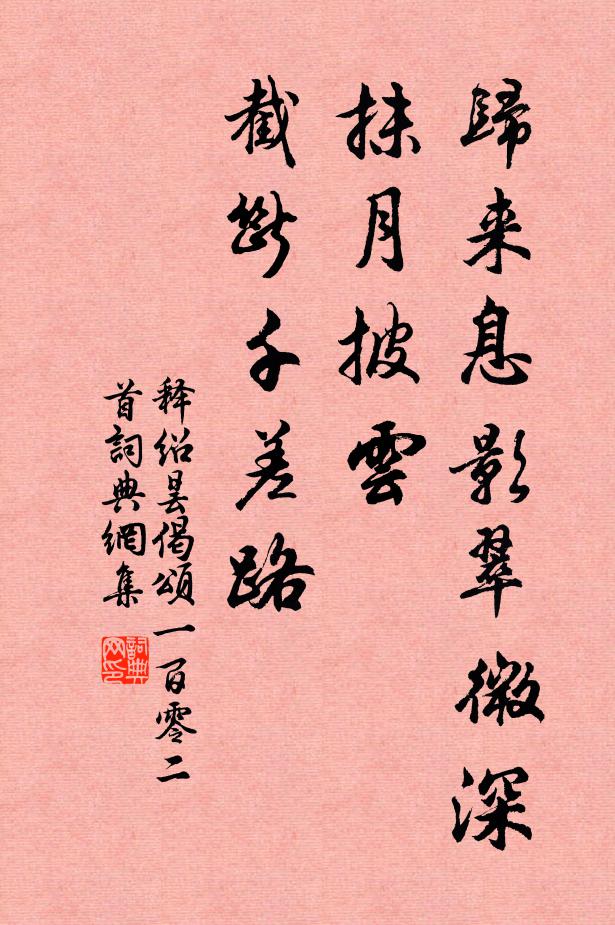 歸来息影翠微深
抹月披雲
截斷千差路
释绍曇偈頌一百零二
首詞典網集
詞典網印